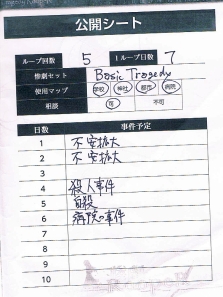 公開シート
ループ回数 5 1ループ日数 7
惨劇セット Basic Tragedy
使用マップ 学校 神社 都市 病院
相談 可 不可
日数 事件予定
1 不安拡大
2 不安拡大
3
4 殺人事件
5 自殺
6 病院の事件
7
8
9
10